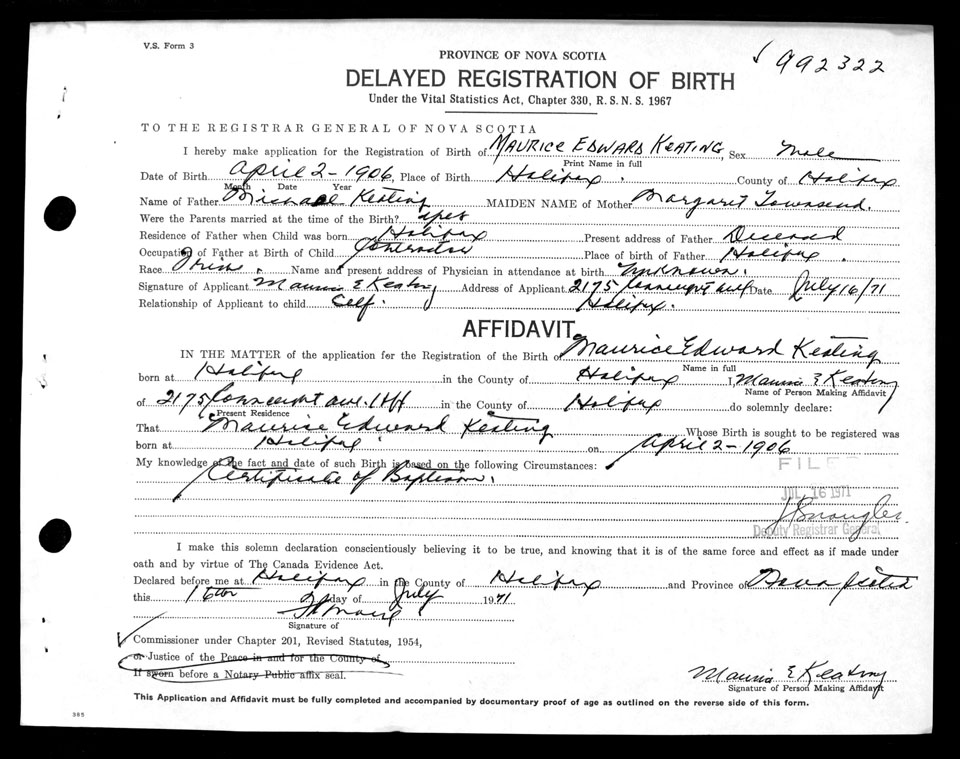 V.S. Form 3
992322
PROVINCE OF NOVA SCOTIA
DELAYED REGISTRATION OF BIRTH
Under the Vital Statistics Act, Chapter 330, R. S. N. S. 1967
TO THE REGISTRAR GENERAL OF NOVA SCOTIA
I hereby make application for the Registration of Birth of MAURICE EDWARD KEATING, Sex Male
Print Name in full
Date of Birth April 2-1906, Place of Birth Halifax. County of Halifax
Month Date Year
Name of Father Michael Keating MAIDEN NAME of Mother Margaret Townsend.
Were the Parents married at the time of the Birth? yes
Residence of Father when Child was born Halifax Present address of Father Deceased
Occupation of Father at Birth of Child Contractor Place of birth of Father Halifax.
Race Irish. Name and present address of Physician in attendance at birth Unknown.
Signature of Applicant Maurice E Keating Address of Applicant 2175 Connaught ave Date July 16/71
Relationship of Applicant to child Self. Halifax.
AFFIDAVIT
IN THE MATTER of the application for the Registration of the Birth of Maurice Edward Keating
Name in full
born at Halifax in the County of Halifax I, Maurice E Keating
Name of Person Making Affidavit
of 2175 Connaught ave. Hfx in the County of Halifax do solemnly declare:
Present Residence
That Maurice Edward Keating Whose Birth is sought to be registered was
born at Halifax on April 2-1906
My knowledge of the fact and date of such Birth is based on the following Circumstances:
Certificate of Baptism.
FILED
JUL 16 1971
Deputy Registrar General
I make this solemn declaration conscientiously believing it to be true, and knowing that it is of the same force and effect as if made under
oath and by virtue of The Canada Evidence Act.
Declared before me at Halifax in the County of Halifax and Province of Nova Scotia
this 16th day of July 1971
Signature of
Commissioner under Chapter 201, Revised Statutes, 1954,
or Justice of the Peace in and for the County of
If sworn before a Notary Public affix seal.
Maurice E Keating
Signature of Person Making Affidavit
This Application and Affidavit must be fully completed and accompanied by documentary proof of age as outlined on the reverse side of this form.
385